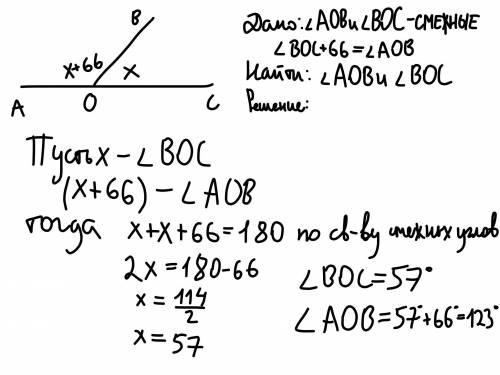 B
x+66 x
A O C
Дано: ∠AOB и ∠BOC-смежные
∠BOC+66=∠AOB
Найти: ∠AOB и ∠BOC
Решение:
Пусть x - ∠BOC
(x+66) - ∠AOB
тогда x+x+66=180 по св-ву смежных углов
2x=180-66
x=114/2
x=57
∠BOC=57°
∠AOB=57°+66°=123°